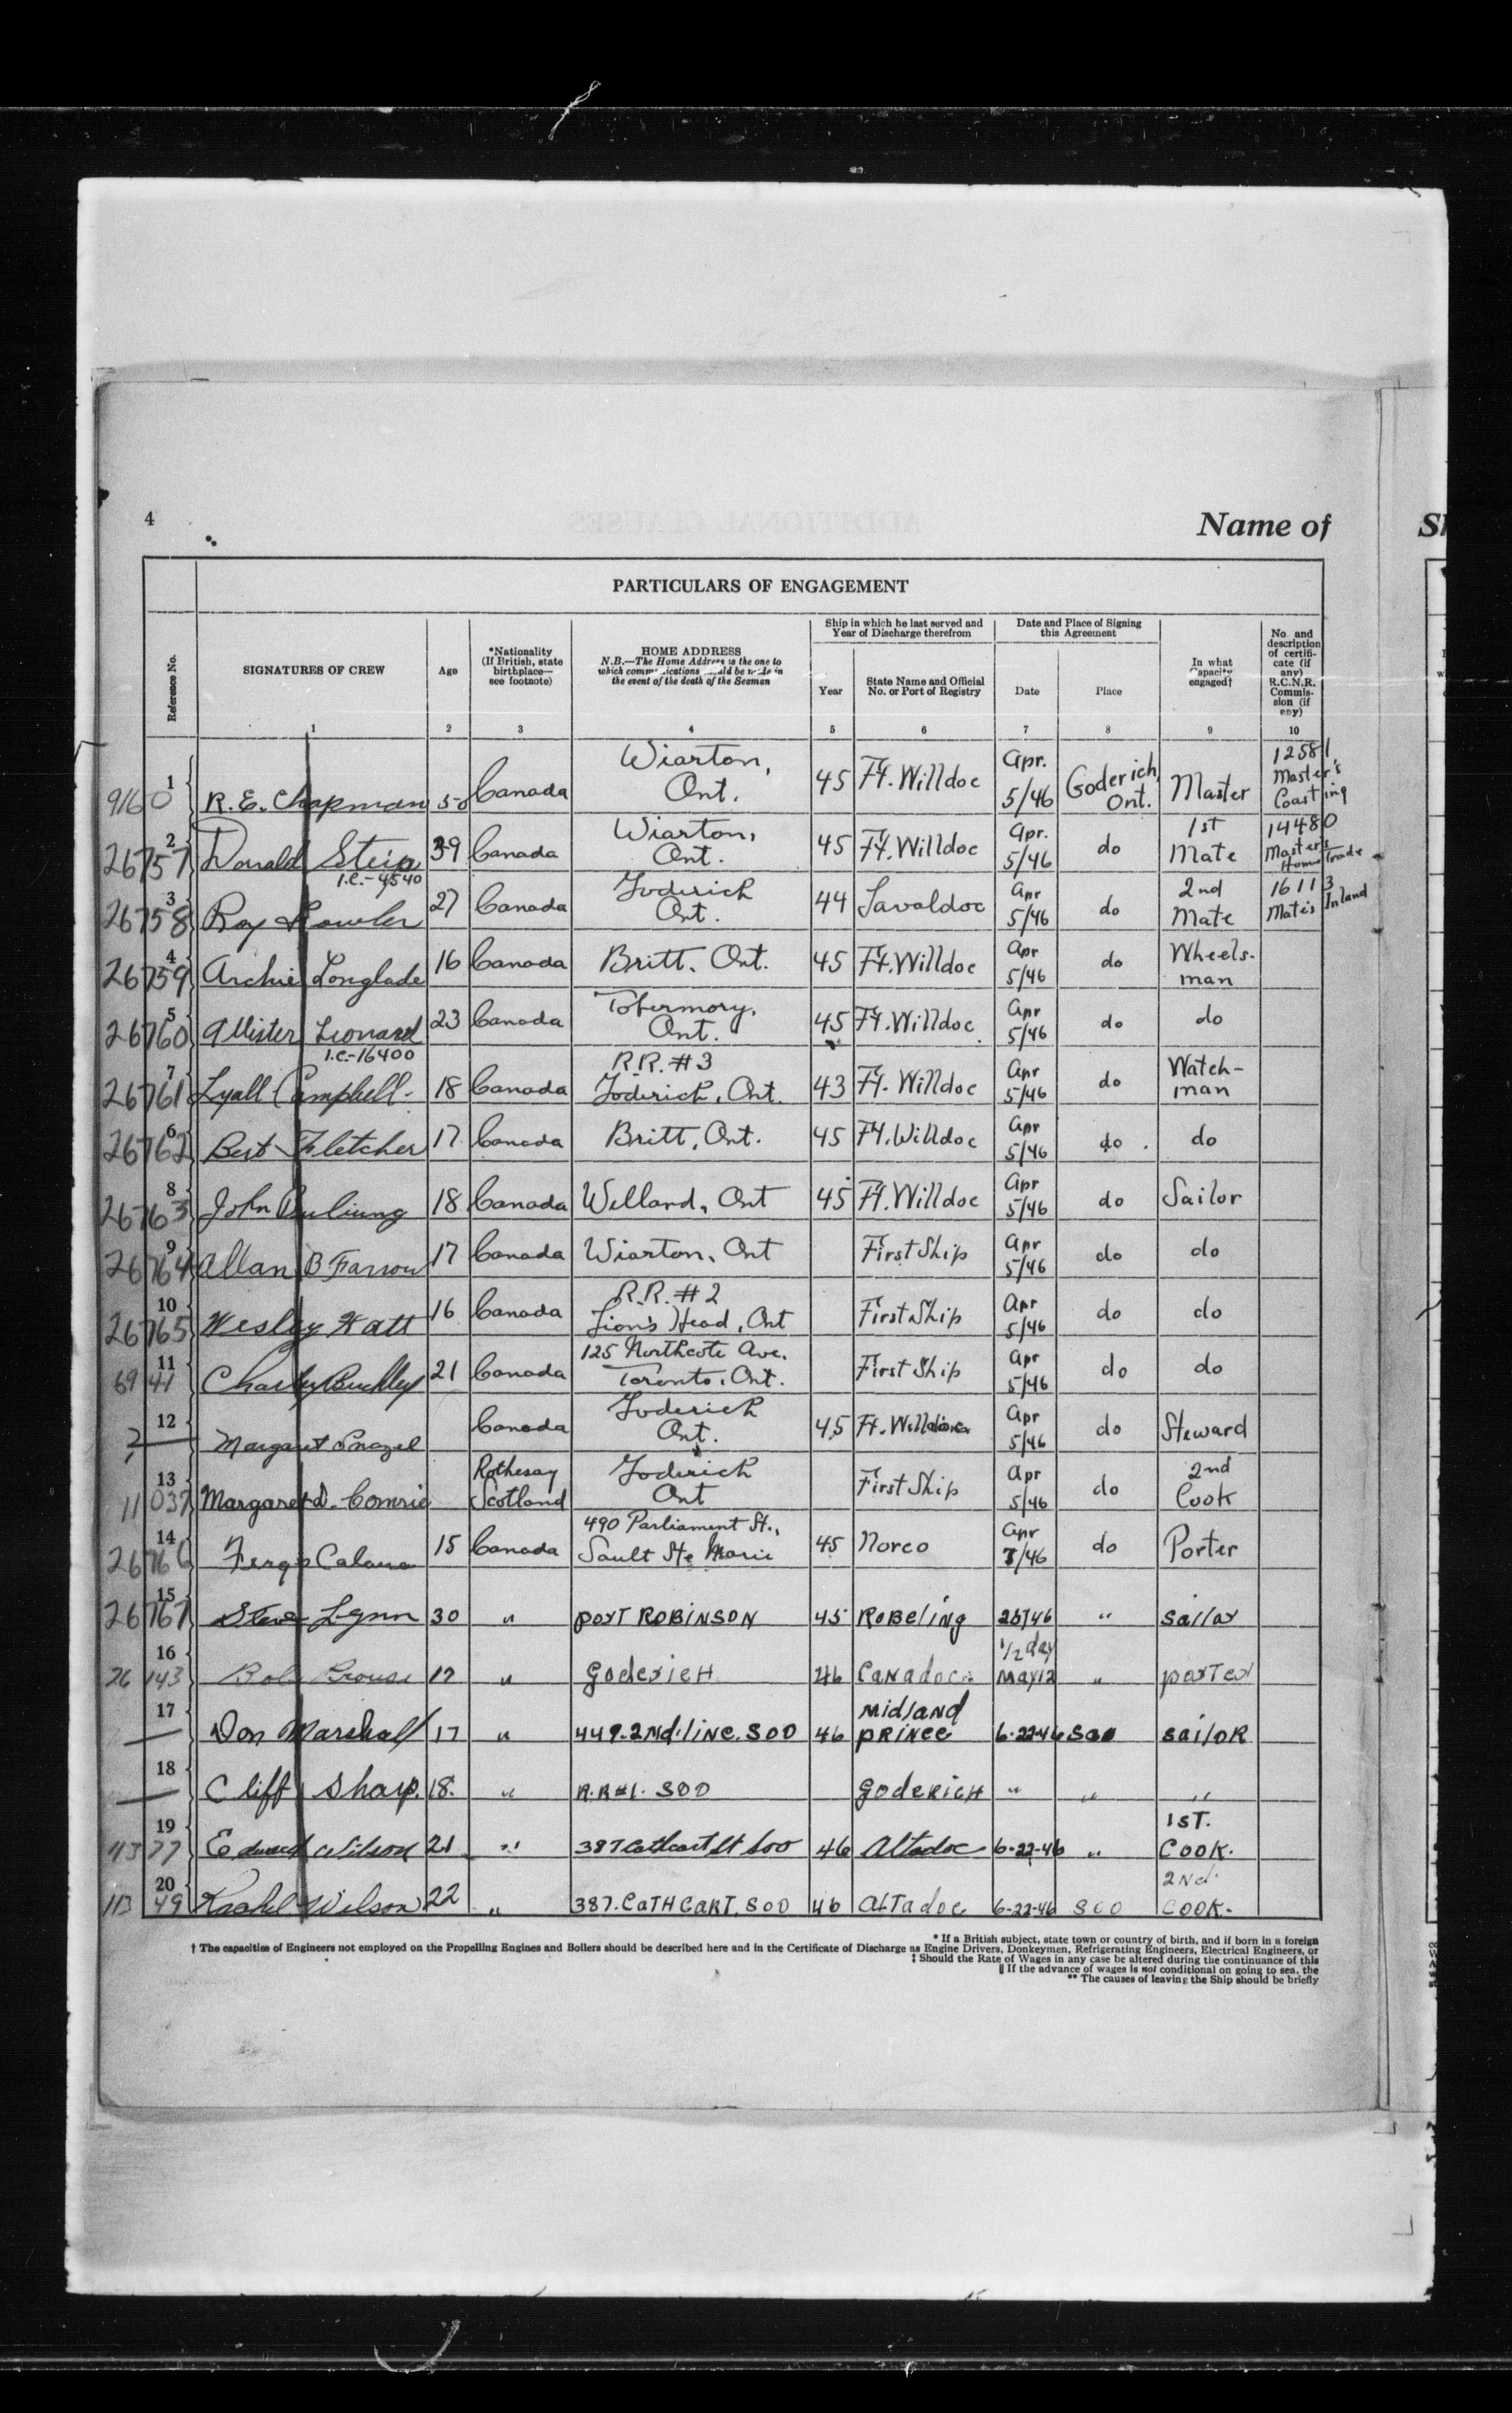 4
Name of
PARTICULARS OF ENGAGEMENT
Reference No.
SIGNATURES OF CREW
Age
*Nationality
(If British, state
birthplace—
see footnote)
HOME ADDRESS
N.B.—The Home Address is the one to
which communications should be made in
the event of the death of the Seaman
Ship in which he last served and
Year of Discharge therefrom
Year
State Name and Official
No. or Port of Registry
Date and Place of Signing
this Agreement
Date
Place
In what
Capacity
engaged†
No and
description
of certifi-
cate (if
any)
R.C.N.R.
Commis-
sion (if
any)
1 2 3 4 5 6 7 8 9 10
9160 1 R. E. Chapman 50 Canada Wiarton, Ont. 45 Ft. Willdoc Apr. 5/46 Goderich Ont. Master 12581 Master's Coasting
26757 2 Donald Stein I.C.-4540 39 Canada Wiarton, Ont. 45 Ft. Willdoc Apr. 5/46 do 1st Mate 14480 Master's Home Trade
26758 3 Roy 27 Canada Goderich Ont. 44 Savaldoc Apr 5/46 do 2nd Mate 16113 Mate's Inland
26759 4 Archie Longlade 16 Canada Britt, Ont. 45 Ft. Willdoc Apr 5/46 do Wheels-man
26760 5 Allister Leonard I.C.-16400 23 Canada Tobermory, Ont. 45 Ft. Willdoc Apr 5/46 do do
26761 7 Lyall Campbell 18 Canada R.R. #3 Goderich, Ont. 43 Ft. Willdoc Apr 5/46 do Watch-man
26762 6 Bert Fletcher 17 Canada Britt, Ont. 45 Ft. Willdoc Apr 5/46 do do
26763 8 John Buliung 18 Canada Welland, Ont 45 Ft. Willdoc Apr 5/46 do Sailor
26764 9 Allan B Farrow 17 Canada Wiarton, Ont First Ship Apr 5/46 do do
26765 10 Wesley Watt 16 Canada R.R. #2 Lion's Head, Ont First Ship Apr 5/46 do do
6941 11 Charley Buckley 21 Canada 125 Northcote Ave. Toronto, Ont. First Ship Apr 5/46 do do
? 12 Margaret Snazel Canada Goderich Ont. 45 Ft. Willdoc Apr 5/46 do Steward
11037 13 Margaret D. Comrie Rothesay Scotland Goderich Ont First Ship Apr 5/46 do 2nd Cook
26766 14 15 Canada 490 Parliament St., Sault Ste Marie 45 Norco Apr /46 do Porter
26767 15 Steve Lynn 30 " PORT ROBINSON 45 Robeling " Sailor
26143 16 Bob 17 " Goderich 46 Canadoc 1/2 day May 12 " porter
— 17 Don Marshall 17 " 449.2Nd.line.SOO 46 Midland PRINCE 6-22-46 Soo sailor
— 18 Cliff Sharp. 18. " R.R#1. SOO GODERICH " " "
4377 19 Edward Wilson 21 " 387 Cathcart St Soo 46 Altadoc 6-22-46 " 1st. Cook.
11349 20 Rachel Wilson 22 " 387. CATHCART. SOO 46 ALTadoc 6-22-46 SOO 2Nd. COOK.
* If a British subject, state town or country of birth, and if born in a foreign
† The capacities of Engineers not employed on the Propelling Engines and Boilers should be described here and in the Certificate of Discharge as Engine Drivers, Donkeymen, Refrigerating Engineers, Electrical Engineers, or
‡ Should the Rate of Wages in any case be altered during the continuance of this
‖ If the advance of wages is not conditional on going to sea, the
** The causes of leaving the Ship should be briefly